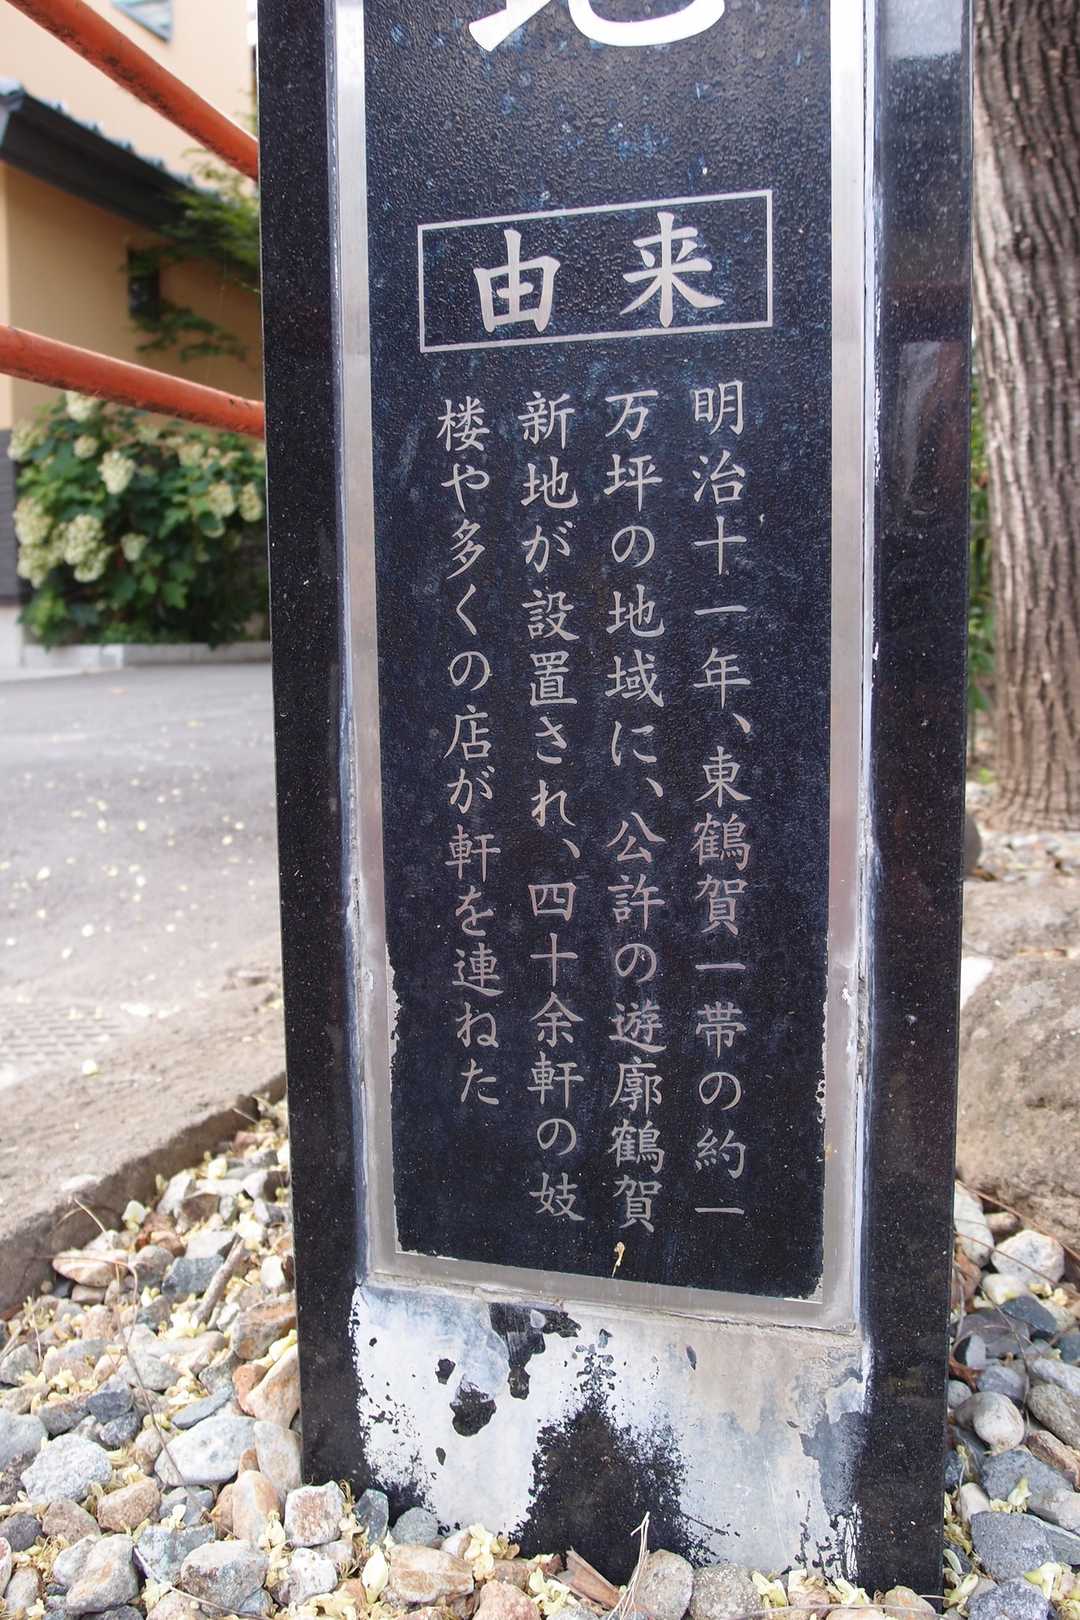 地
由来
明治十一年、東鶴賀一帯の約一
万坪の地域に、公許の遊廓鶴賀
新地が設置され、四十余軒の妓
楼や多くの店が軒を連ねた